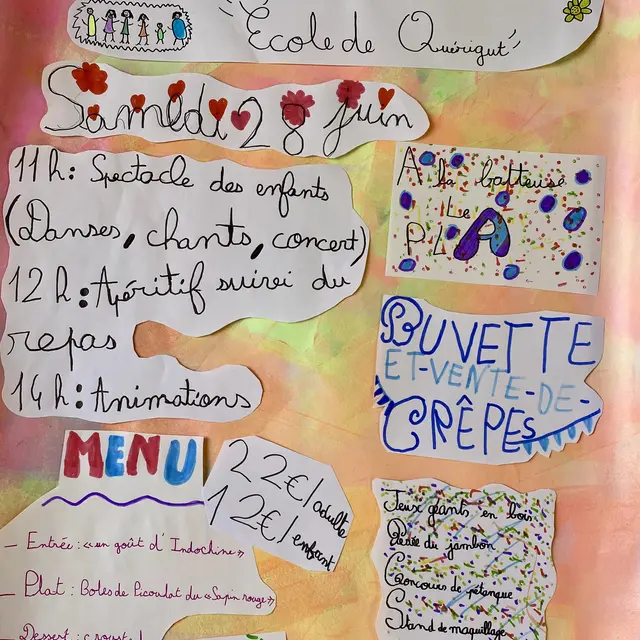 École de Quérigut
Samedi 28 juin
11h: Spectacle des enfants
(Danses, chants, concert)
12h: Apéritif suivi du
repas
14h: Animations
A la batteuse
Le
PLA
BUVETTE
ET-VENTE-DE-
CRÊPEs
MENU
22€/adulte
12€/enfant
— Entrée: «un goût d'Indochine»
— Plat: Boles de Picoulat du «Sapin rouge»
— Dessert:
Jeux géants en bois
Pesée du jambon
Concours de pétanque
Stand de maquillage